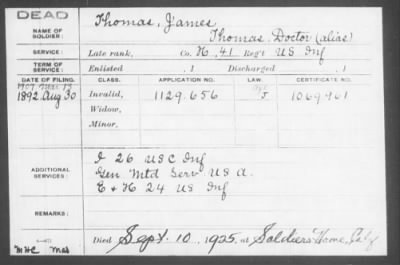 DEAD
NAME OF SOLDIER: Thomas, James
Thomas, Doctor (alias)
SERVICE: Late rank, Co. H, 41 Reg't US Inf
TERM OF SERVICE: Enlisted , 1 Discharged , 1
DATE OF FILING. CLASS. APPLICATION NO. LAW. CERTIFICATE NO.
1892 Aug 30 Invalid, 1129.656 J. 1069.961
Widow,
Minor,
ADDITIONAL SERVICES: I 26 US C Inf
Gen Mtd Serv USA.
E & H 24 US Inf
REMARKS:
Died Sept. 10, 1925, at Soldiers Home, Calif